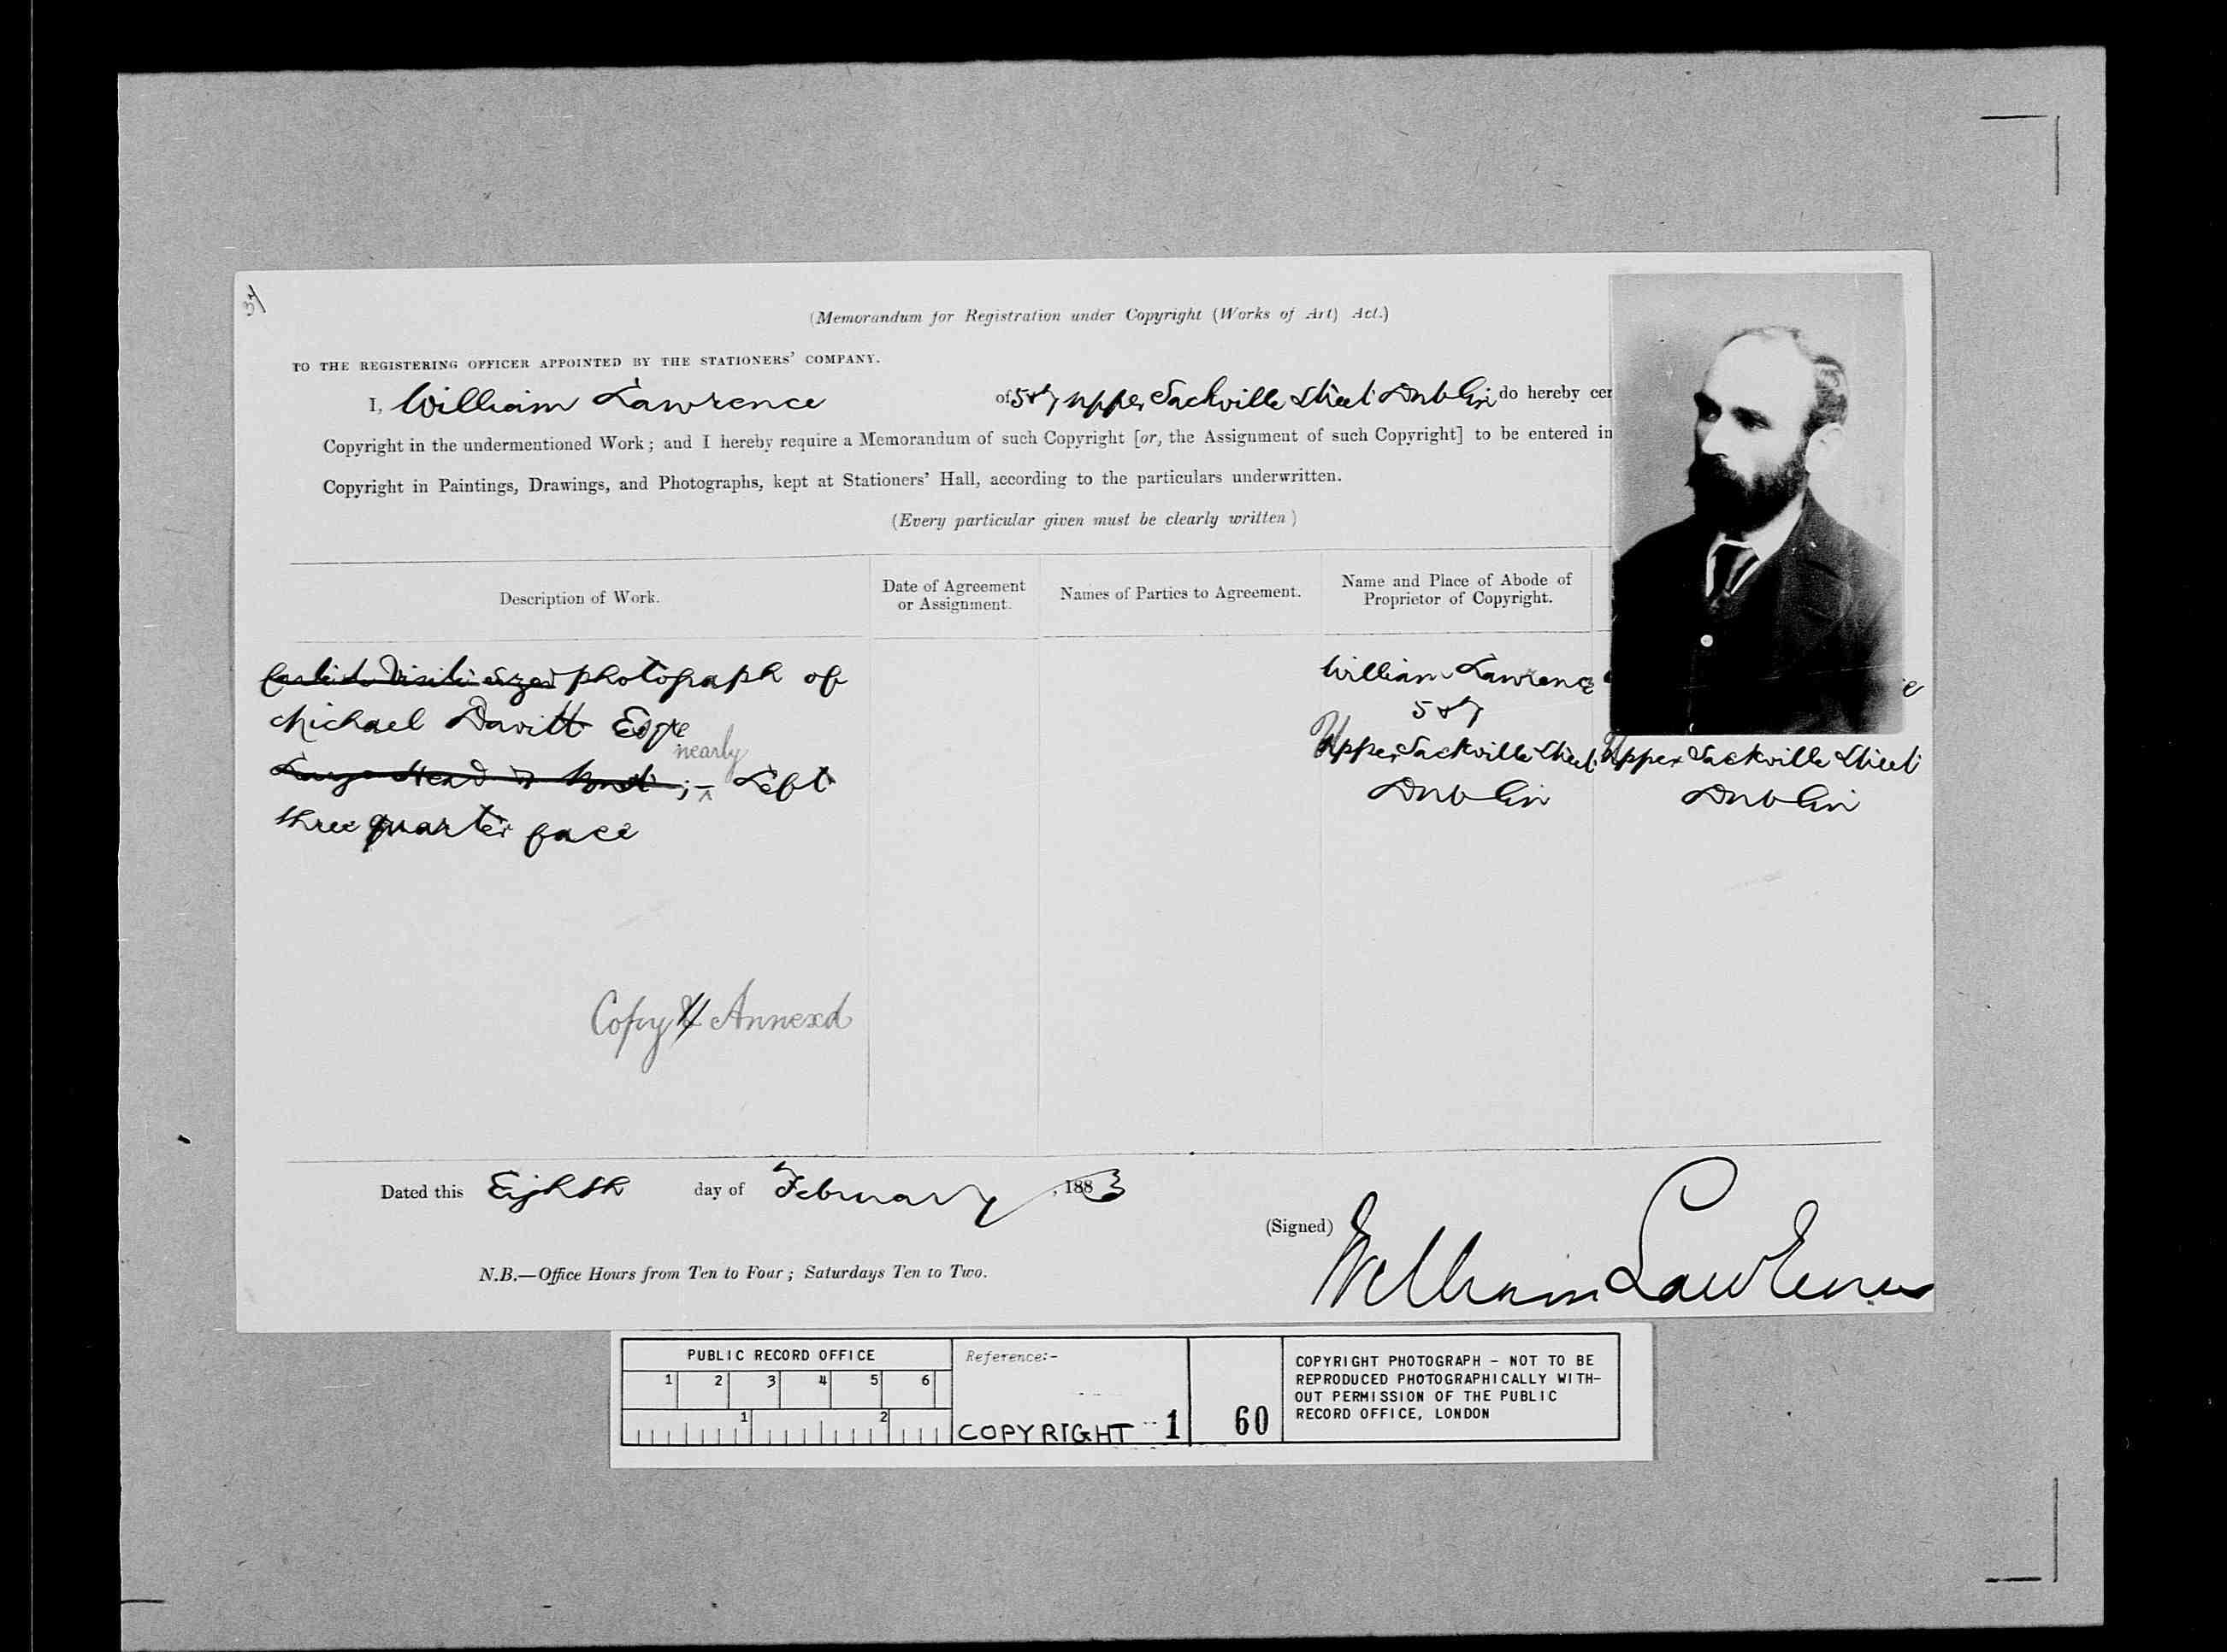 37
(Memorandum for Registration under Copyright (Works of Art) Act.)
TO THE REGISTERING OFFICER APPOINTED BY THE STATIONERS' COMPANY.
I, William Lawrence of 5 & 7 Upper Sackville Street Dublin do hereby cer
Copyright in the undermentioned Work; and I hereby require a Memorandum of such Copyright [or, the Assignment of such Copyright] to be entered in
Copyright in Paintings, Drawings, and Photographs, kept at Stationers' Hall, according to the particulars underwritten.
(Every particular given must be clearly written)
Description of Work.
Date of Agreement
or Assignment.
Names of Parties to Agreement.
Name and Place of Abode of
Proprietor of Copyright.
Carte de Visite sized photograph of
Michael Davitt Esqre
nearly
Large Head & Bust ;- Left
three quarter face
Copy Annexd
William Lawrence
5 & 7
Upper Sackville Street
Dublin
e
Upper Sackville Street
Dublin
Dated this Eighth day of February, 1883
(Signed) William Lawrence
N.B.—Office Hours from Ten to Four; Saturdays Ten to Two.
PUBLIC RECORD OFFICE
1 2 3 4 5 6
1 2
Reference:-
COPYRIGHT 1
60
COPYRIGHT PHOTOGRAPH - NOT TO BE
REPRODUCED PHOTOGRAPHICALLY WITH-
OUT PERMISSION OF THE PUBLIC
RECORD OFFICE, LONDON